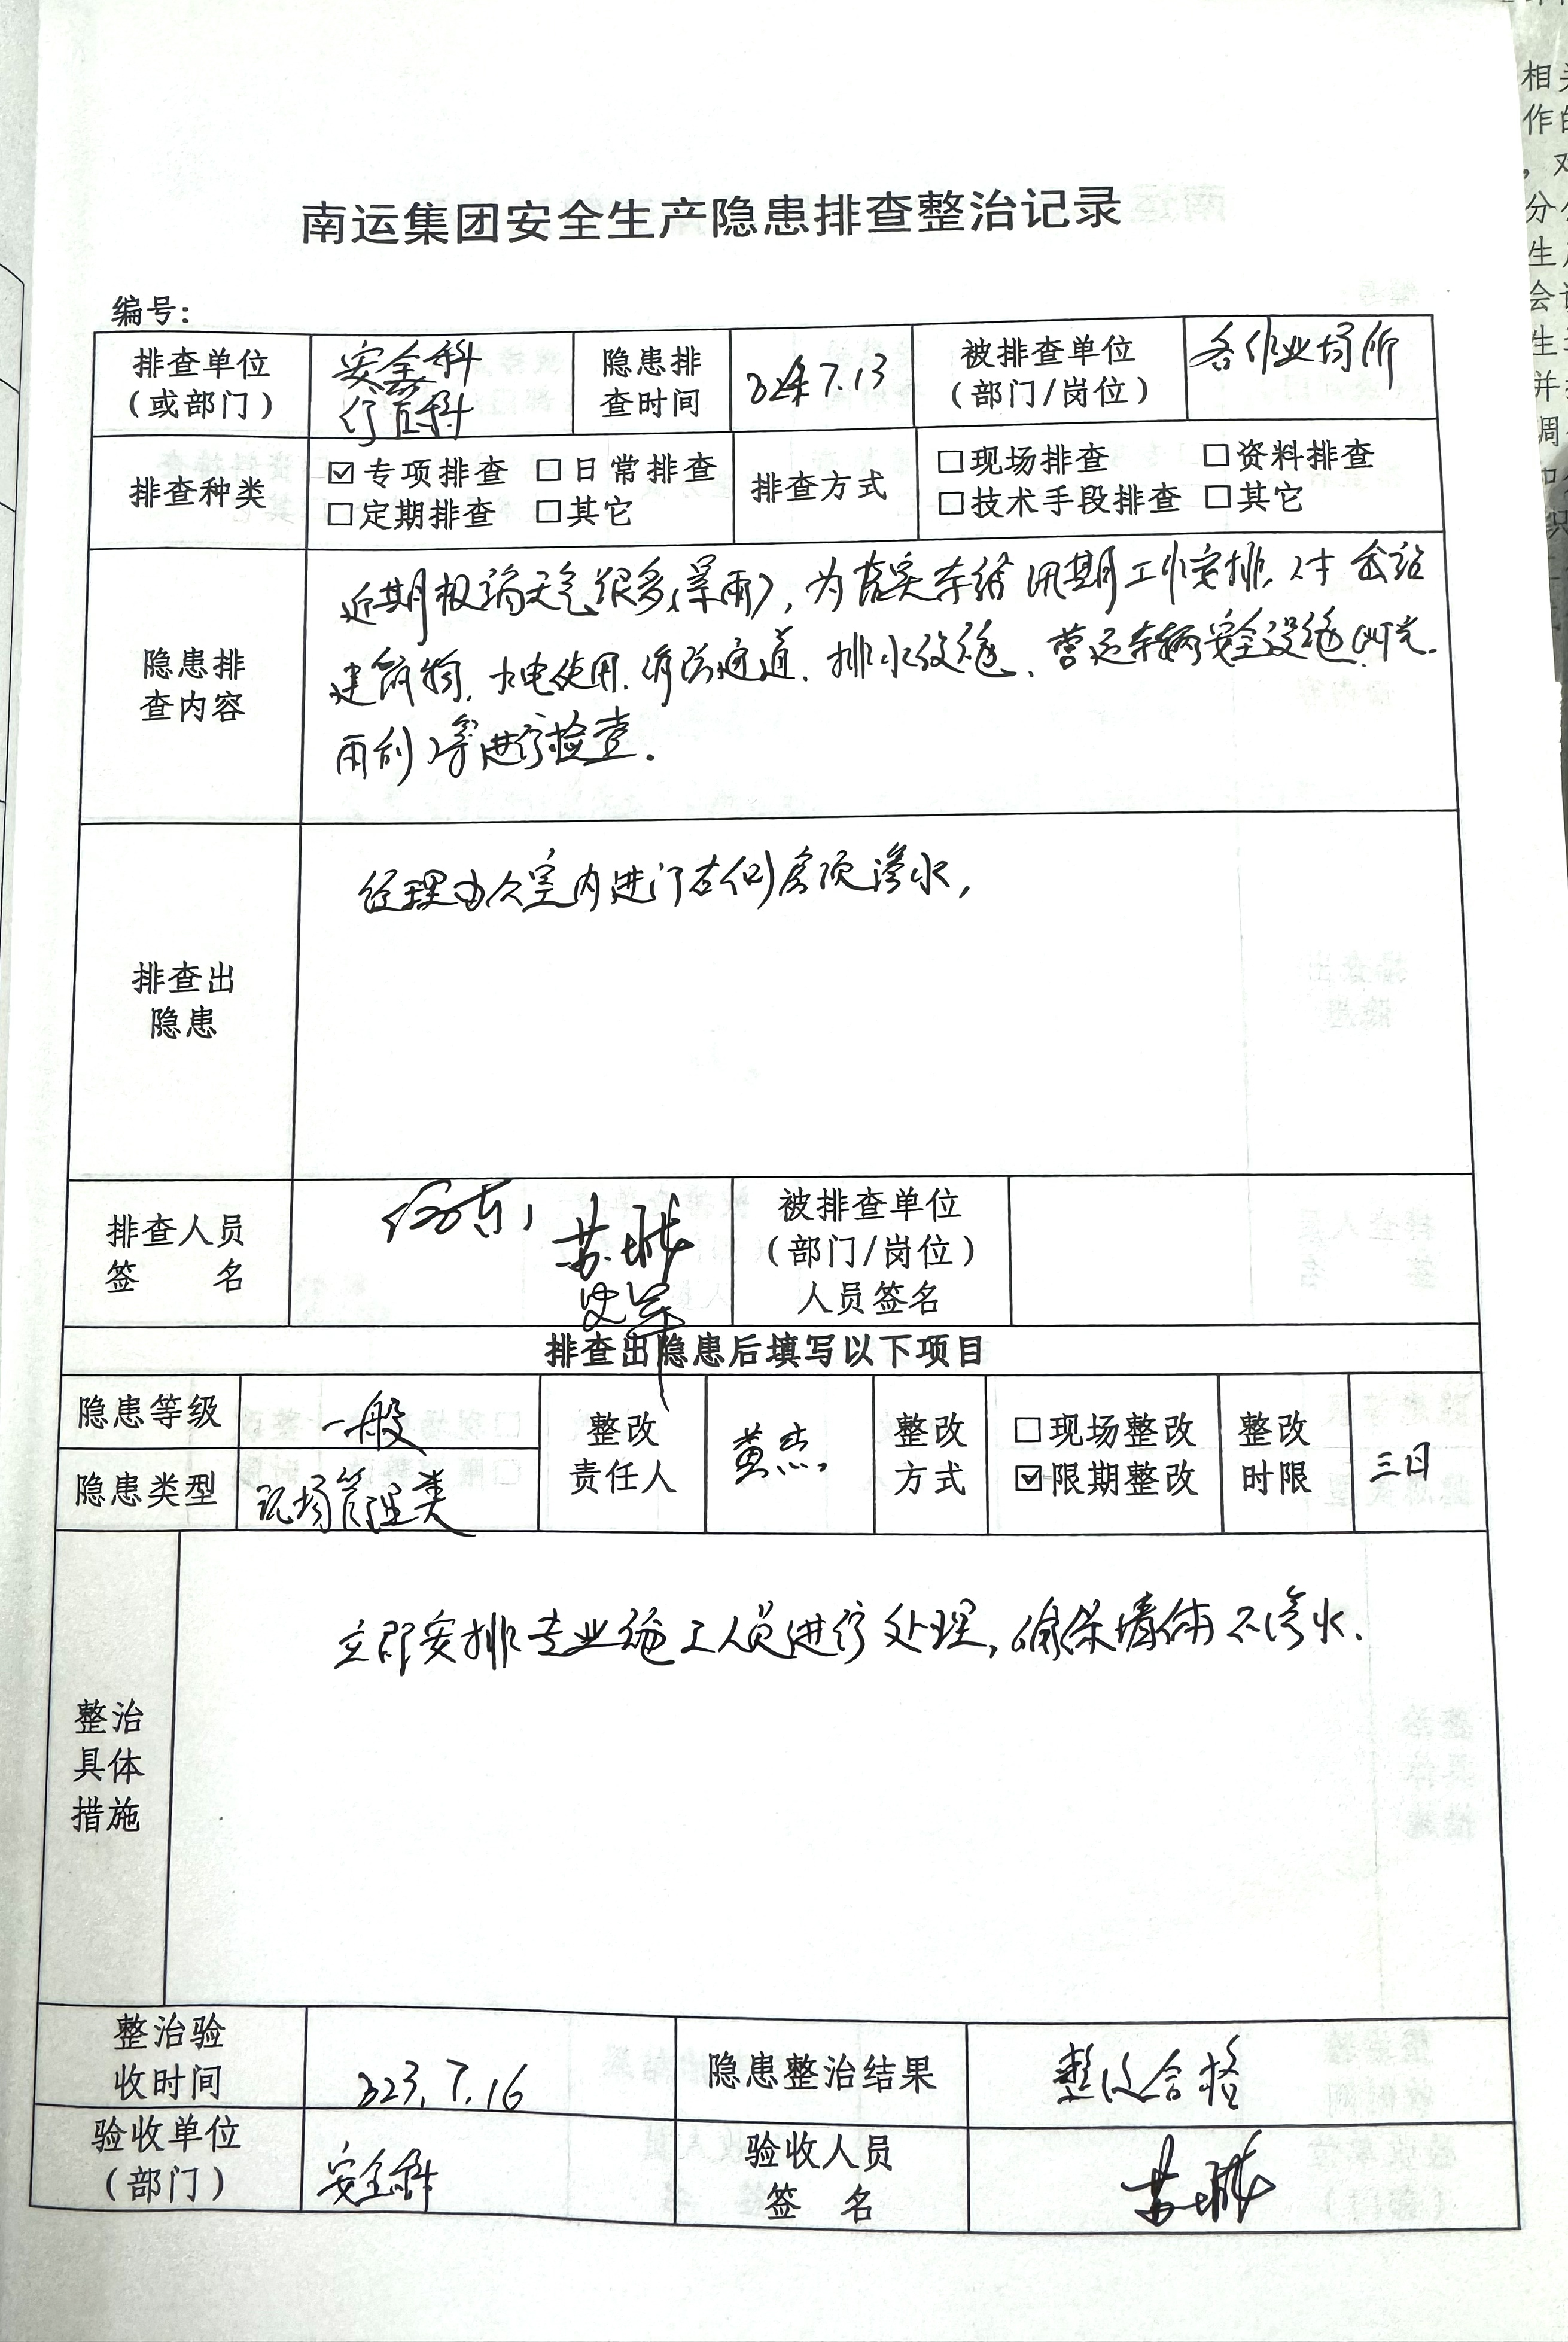 南运集团安全生产隐患排查整治记录
编号:
排查单位
(或部门)
安全科
行管科
隐患排
查时间
7.13
被排查单位
(部门/岗位)
各作业场所
排查种类
☑专项排查 □日常排查
□定期排查 □其它
排查方式
□现场排查 □资料排查
□技术手段排查 □其它
隐患排
查内容
近期极端天气很多(暴雨),为落实车站汛期工作安排,对全站
建筑物.水电使用.消防通道.排水设施.营运车辆安全设施(灯光.
雨刮)等进行检查.
排查出
隐患
经理办公室内进门右侧房顶渗水,
排查人员
签 名
被排查单位
(部门/岗位)
人员签名
排查出隐患后填写以下项目
隐患等级
一般
隐患类型
现场管理类
整改
责任人
黄杰
整改
方式
□现场整改
☑限期整改
整改
时限
三日
整治
具体
措施
立即安排专业施工人员进行处理,确保墙体不渗水.
整治验
收时间
2023.7.16
隐患整治结果
整改合格
验收单位
(部门)
安全科
验收人员
签 名